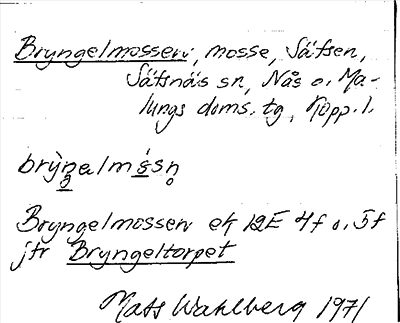 Bryngelmossen, mosse, Säfsen,
Säfsnäs sn, Nås o. Ma-
lungs doms. tg, Kopp. l.
brỳŋəlmśsn̥
Bryngelmossen ek 12E 4f o. 5f
jfr Bryngeltorpet
Mats Wahlberg 1971